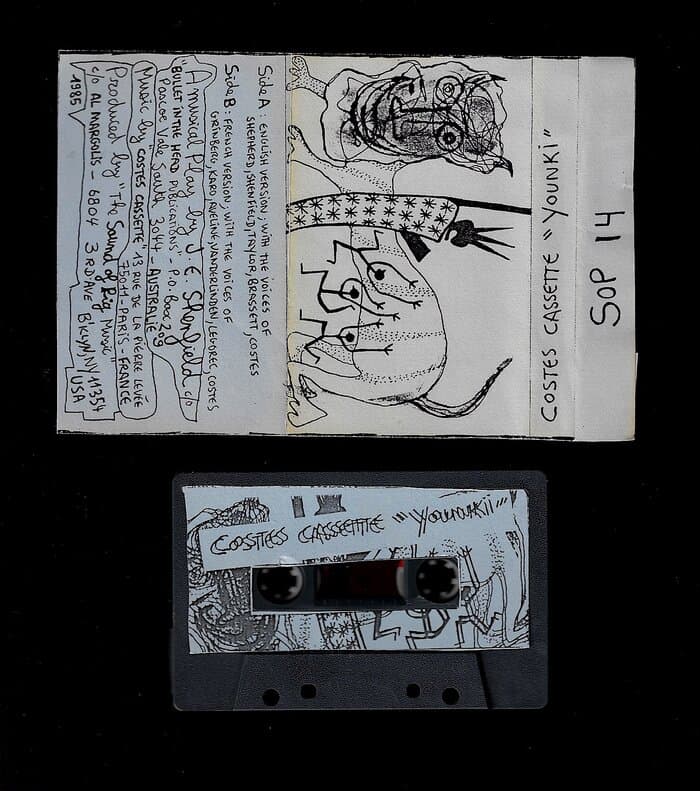 SOP 14
COSTES CASSETTE "YOUNKI"
Side A : ENGLISH VERSION, WITH THE VOICES OF
SHEPHERD, SHENFIELD, TAYLOR, BRASSETT, COSTES
Side B : FRENCH VERSION, WITH THE VOICES OF
GRINBERG, KARO, AVELINE, VANDERLINDEN, LEGOREC, COSTES
"A musical Play by J.E. Shenfield c/o
"BULLET IN THE HEAD PUBLICATIONS" P.O. Box 209
Pascoe Vale South 3044 - AUSTRALIE
Music by COSTES CASSETTE 12 RUE DE LA PIERRE LEVÉE
75011 - PARIS - FRANCE
Produced by "The Sound of Pig Music"
c/o AL MARGOLIS - 6804 3RD AVE B'KLYN, NY 11354
1985 USA
COSTES CASSETTE "Younki"